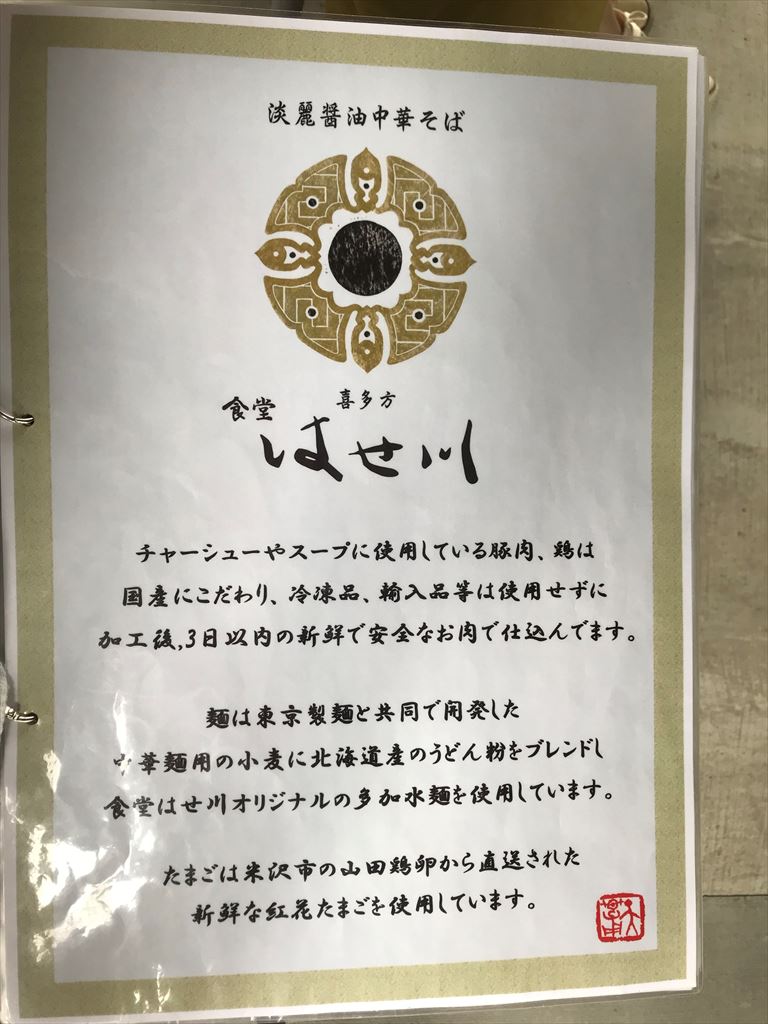 淡麗醤油中華そば
食堂
喜多方
はせ川
チャーシューやスープに使用している豚肉、鶏は
国産にこだわり、冷凍品、輸入品等は使用せずに
加工後,3日以内の新鮮で安全なお肉で仕込んでます。
麺は東京製麺と共同で開発した
中華麺用の小麦に北海道産のうどん粉をブレンドし
食堂はせ川オリジナルの多加水麺を使用しています。
たまごは米沢市の山田鶏卵から直送された
新鮮な紅花たまごを使用しています。